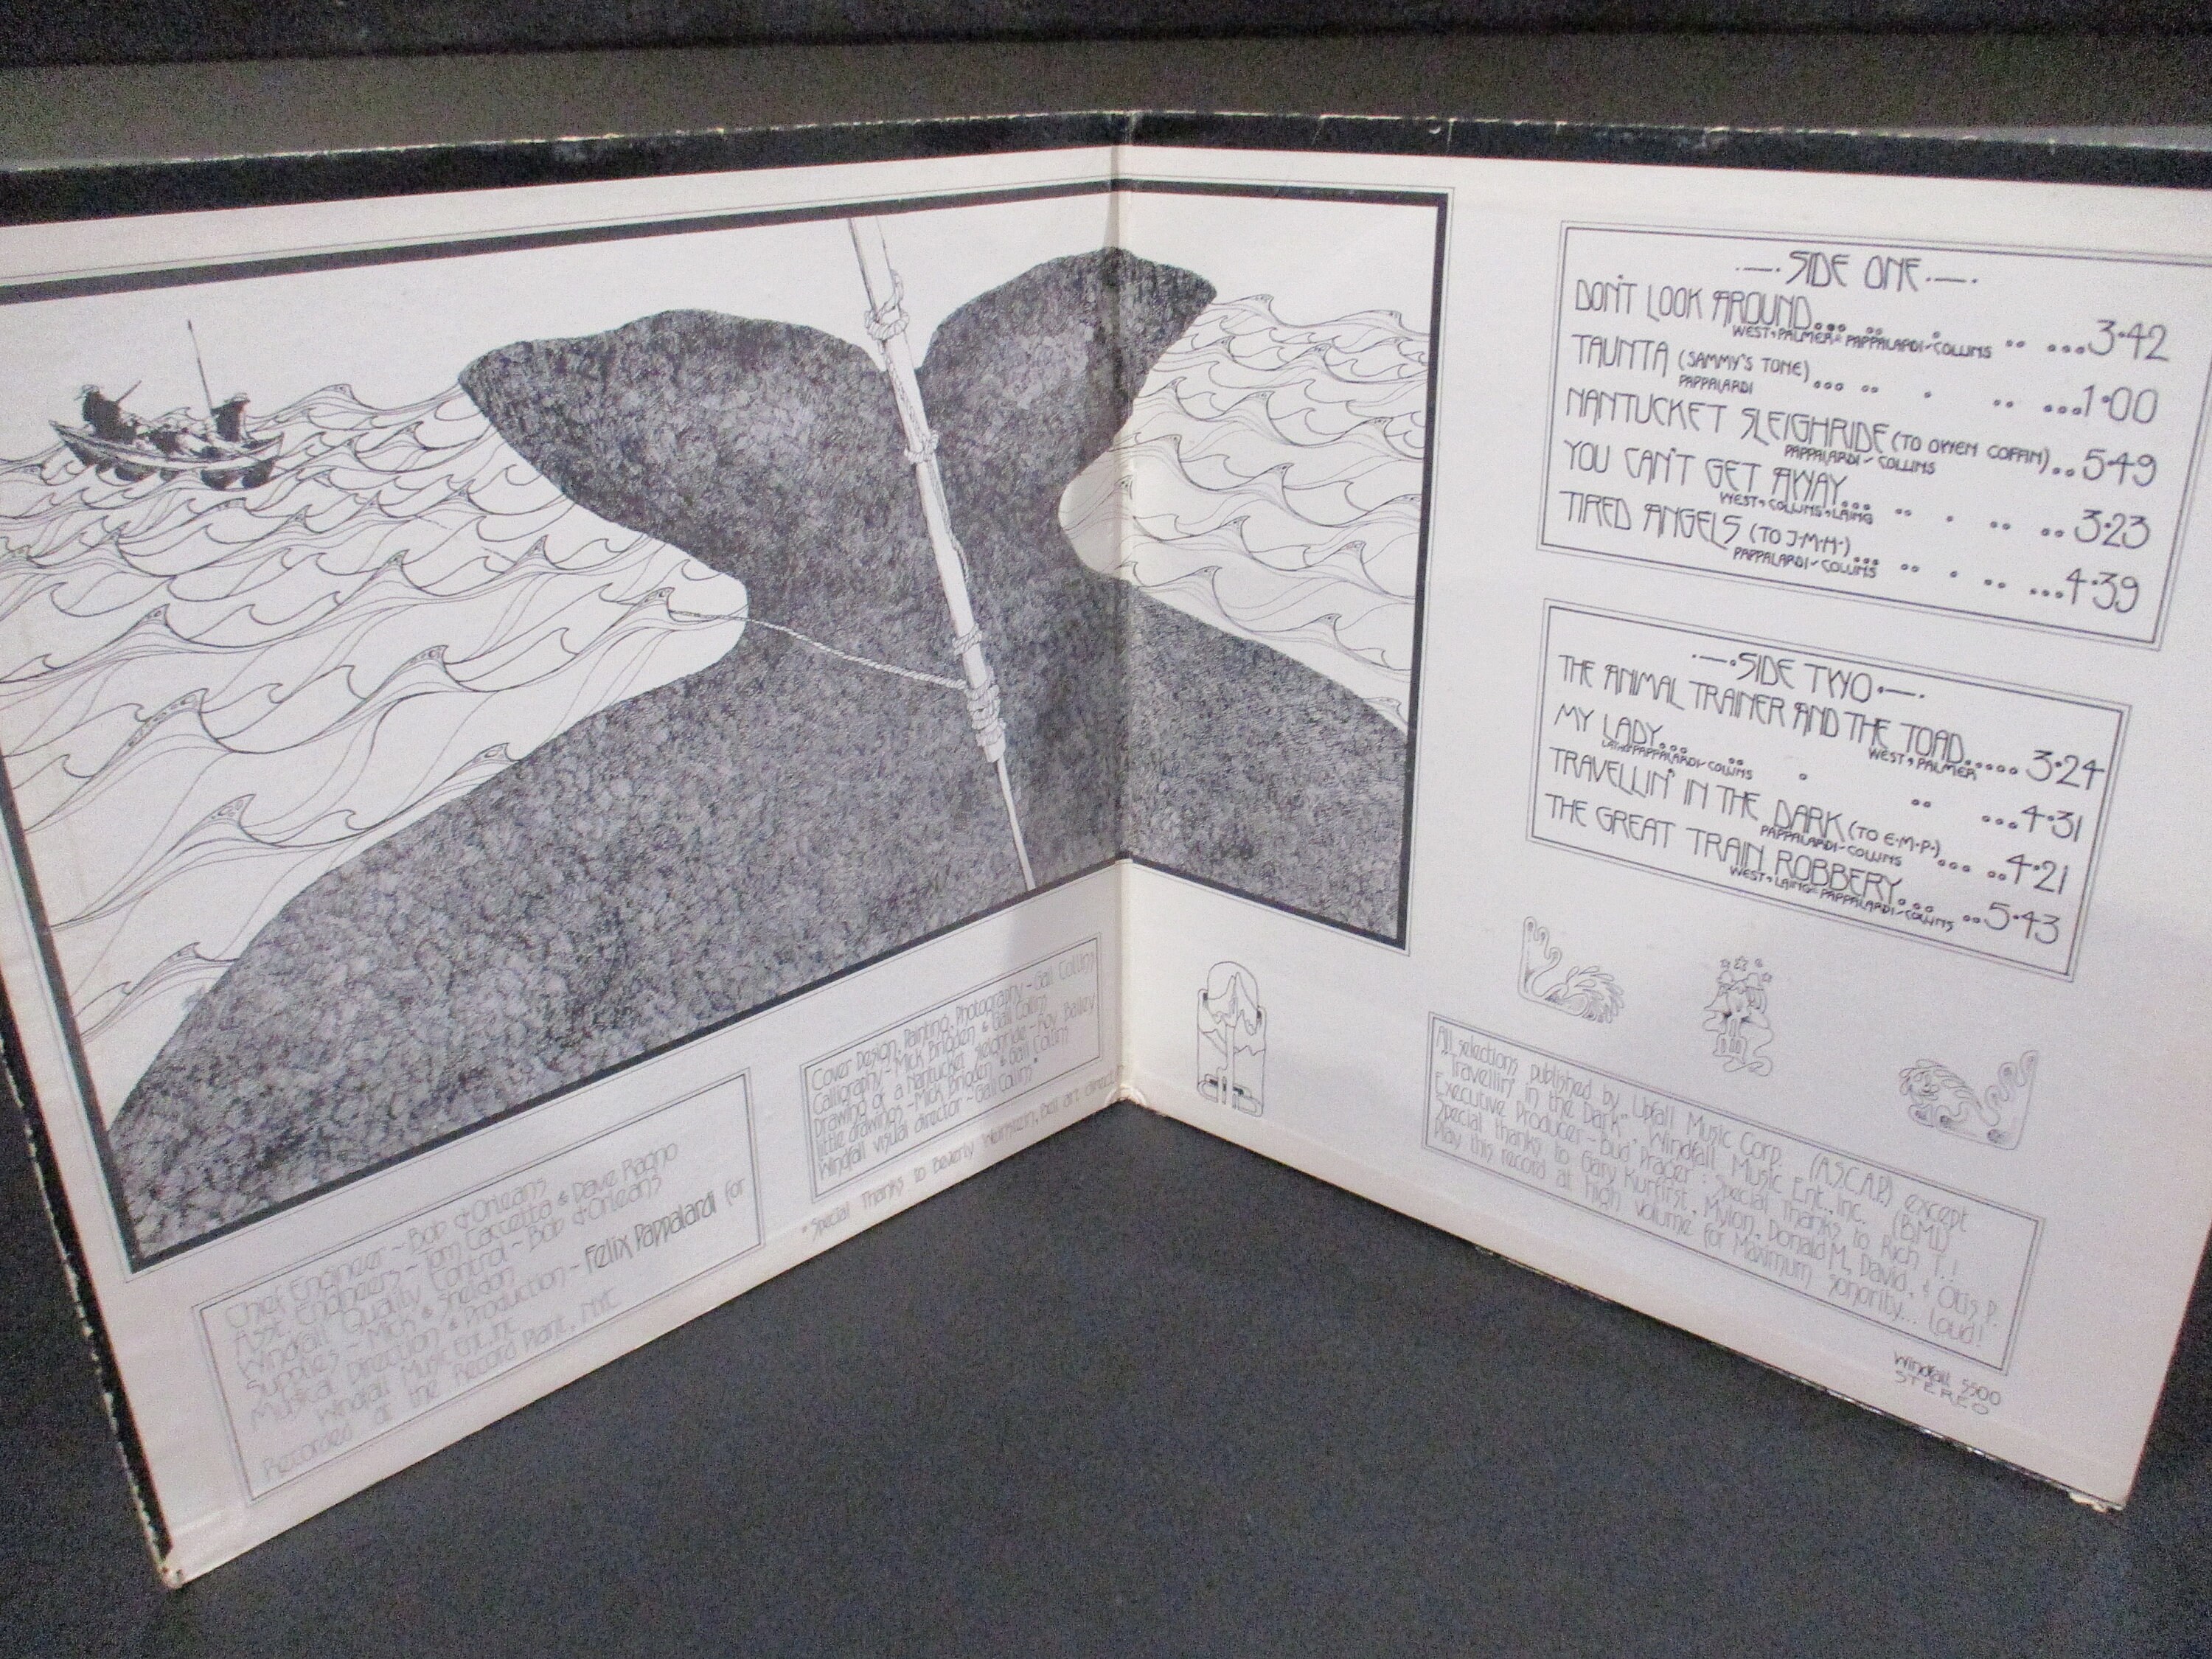 Chief Engineer ~ Bob d'Orleans
Asst. Engineers ~ Tom Caccetta & Dave Ragno
Windfall Quality Control ~ Bob d'Orleans
Supplies ~ Mick & Sheldon
Musical Direction & Production ~ Felix Pappalardi for
Windfall Music Ent. Inc.
Recorded at the Record Plant, NYC
Cover Design, Painting, Photography ~ Gail Collins
Calligraphy ~ Mick Brigden & Gail Collins
Drawing of a Nantucket Sleighride ~ Roy Bailey
little drawings ~ Mick Brigden & Gail Collins
Windfall visual director ~ Gail Collins*
*Special Thanks to Beverly Weinstein, Bell art direct
SIDE ONE
DON'T LOOK AROUND... 3·42
WEST, PALMER, PAPPALARDI~COLLINS
TAUNTA (SAMMY'S TONE)... 1·00
PAPPALARDI
NANTUCKET SLEIGHRIDE (TO OWEN COFFIN).. 5·49
PAPPALARDI~COLLINS
YOU CAN'T GET AWAY... 3·23
WEST, COLLINS, LAING
TIRED ANGELS (TO J·M·H·)... 4·39
PAPPALARDI~COLLINS
SIDE TWO
THE ANIMAL TRAINER AND THE TOAD..... 3·24
WEST, PALMER
MY LADY... 4·31
LAING, PAPPALARDI~COLLINS
TRAVELLIN' IN THE DARK (TO E·M·P·)... 4·21
PAPPALARDI~COLLINS
THE GREAT TRAIN ROBBERY... 5·43
WEST, LAING, PAPPALARDI~COLLINS
All selections published by Upfall Music Corp. (A.S.C.A.P.) except
"Travellin' in the Dark", Windfall Music Ent., Inc. (B.M.I.)
Executive Producer ~ Bud Prager : Special Thanks to Rich T.!
Special thanks to Gary Kurfirst, Mylon, Donald M, David, & Otis P.
Play this record at high volume for Maximum sonority... Loud!
Windfall 5500
STEREO